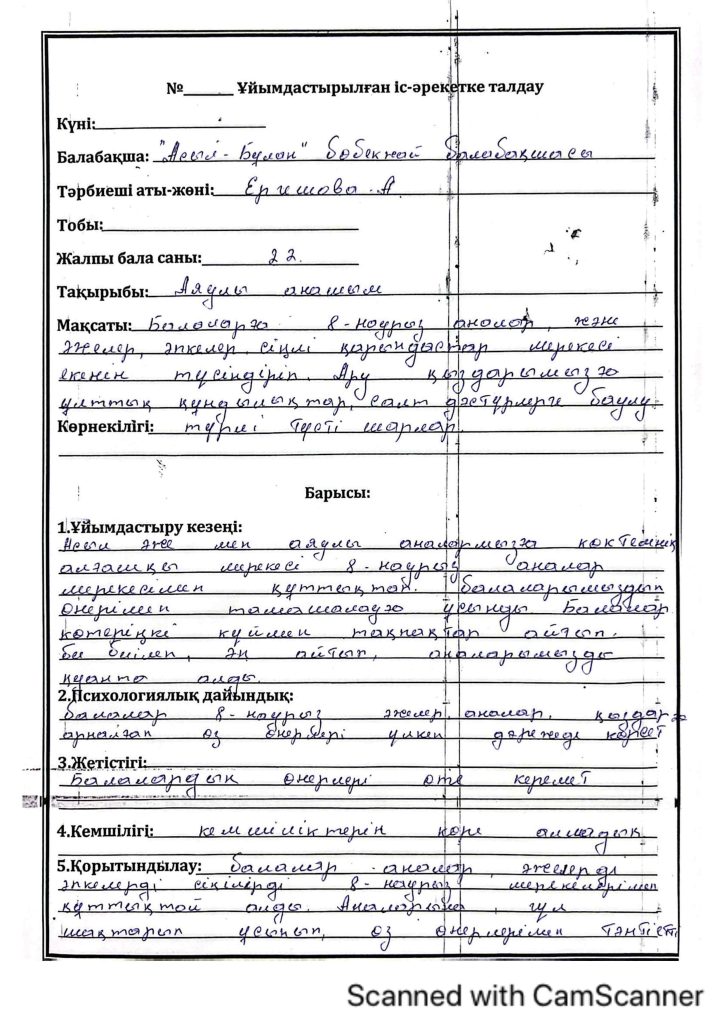 №______ Ұйымдастырылған іс-әрекетке талдау
Күні:
Балабақша: "Асыл-Бұлан" бөбекжай балабақшасы
Тәрбиеші аты-жөні: Ергешова А
Тобы:
Жалпы бала саны: 22.
Тақырыбы: Аяулы анашым
Мақсаты: Балаларға 8-наурыз аналар, және
әжелер, әпкелер, сіңлі қарындастар мерекесі
екенін түсіндіріп. Ару қыздарымызға
ұлттық құндылықтар, салт дәстүрлерге баулу.
Көрнекілігі: түрлі түсті шарлар.
Барысы:
1.Ұйымдастыру кезеңі:
Асыл әже мен аяулы аналармызға көктемнің
алғашқы мерекесі 8-наурыз аналар
мерекесімен құттықтап. балаларымыздың
өнерімен тамашалауға ұсынды Балалар
көтеріңкі күймен тақпақтар айтып.
би билеп, ән айтып, аналарымызды
қуанта алды.
2.Психологиялық дайындық:
балалар 8-наурыз әжелер, аналар, қыздарға
арналған өз өнерлері үлкен дәрежеде көрсет
3.Жетістігі:
Балалардың өнерлері өте керемет
4.Кемшілігі: кемшіліктерін көре алмадық
5.Қорытындылау: балалар аналар, әжелерді
әпкелерді сіңілерді 8-наурыз мерекелерімен
құттықтай алды. Аналарына, гүл
шақтарын ұсынып, өз өнерлерімен тәнті етті
Scanned with CamScanner